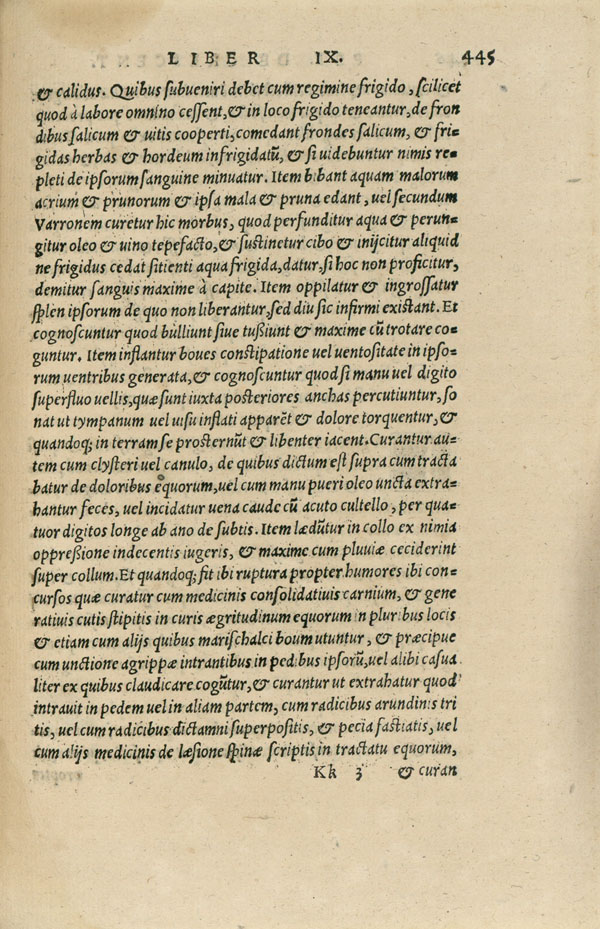 LIBER IX. 445
& calidus. Quibus subueniri debet cum regimine frigido, scilicet
quod à labore omnino cessent, & in loco frigido teneantur, de fron
dibus salicum & uitis cooperti, comedant frondes salicum, & fri-
gidas herbas & hordeum infrigidatũ, & si uidebuntur nimis re-
pleti de ipsorum sanguine minuatur. Item bibant aquam malorum
acrium & prunorum & ipsa mala & pruna edant, uel secundum
Varronem curetur hic morbus, quod perfunditur aqua & perun-
gitur oleo & uino tepefacto, & sustinetur cibo & inijcitur aliquid
ne frigidus cedat sitienti aqua frigida, datur, si hoc non proficitur,
demitur sanguis maxime à capite. Item oppilatur & ingrossatur
splen ipsorum de quo non liberantur, sed diu sic infirmi existant. Et
cognoscuntur quod bulliunt siue tußiunt & maxime cũ trotare co-
guntur. Item inflantur boues constipatione uel uentositate in ipso-
rum uentribus generata, & cognoscuntur quod si manu uel digito
superfluo uellis, quæ sunt iuxta posteriores anchas percutiuntur, so
nat ut tympanum uel uisu inflati apparẽt & dolore torquentur, &
quandoq; in terram se prosternũt & libenter iacent. Curantur au-
tem cum clysteri uel canulo, de quibus dictum est supra cum tracta
batur de doloribus equorum, uel cum manu pueri oleo uncta extra-
hantur feces, uel incidatur uena caude cũ acuto cultello, per qua-
tuor digitos longe ab ano de subtis. Item lædũtur in collo ex nimia
oppreßione indecentis iugeris, & maxime cum pluuiæ ceciderint
super collum. Et quandoq; fit ibi ruptura propter humores ibi con-
cursos quæ curatur cum medicinis consolidatiuis carnium, & gene
ratiuis cutis stipitis in curis ægritudinum equorum in pluribus locis
& etiam cum alijs quibus marischalci boum utuntur, & præcipue
cum unctione agrippæ intrantibus in pedibus ipsorũ, uel alibi casua
liter ex quibus claudicare cogũtur, & curantur ut extrahatur quod
intrauit in pedem uel in aliam partem, cum radicibus arundinis tri
tis, uel cum radicibus dictamni superpositis, & pecia fastiatis, uel
cum alijs medicinis de læsione spinæ scriptis in tractatu equorum,
Kk 3 & curan